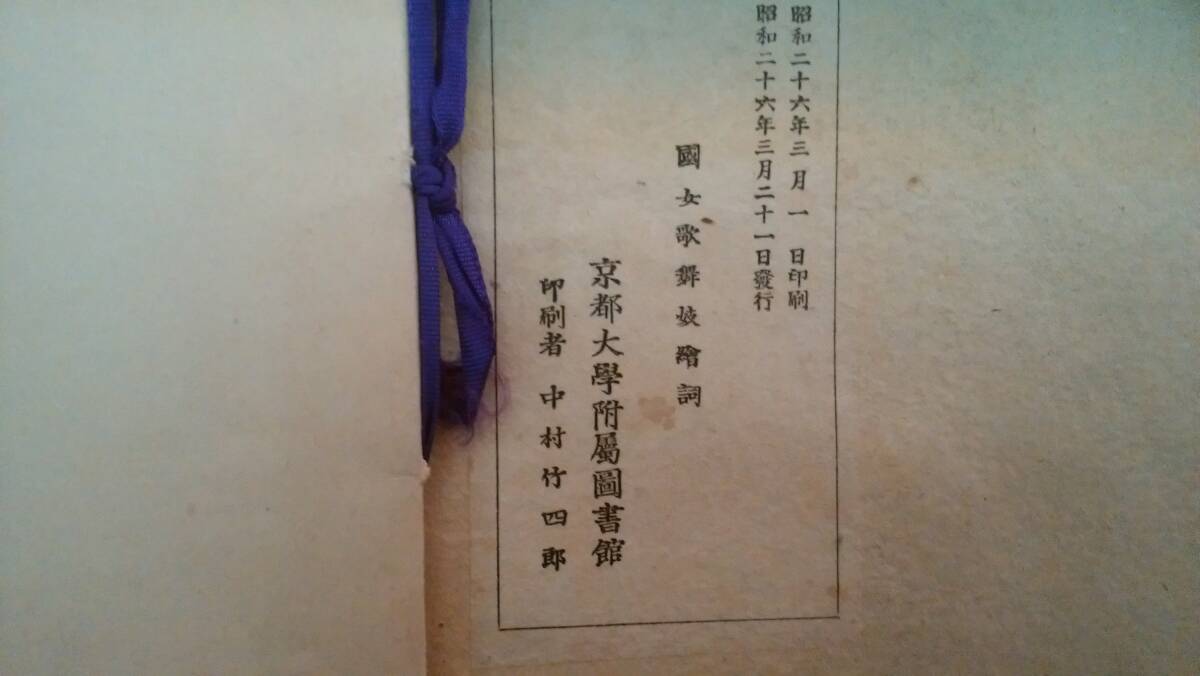 昭和二十六年三月一日印刷
昭和二十六年三月二十一日發行
國女歌舞妓繪詞
京都大學附屬圖書館
印刷者 中村竹四郎